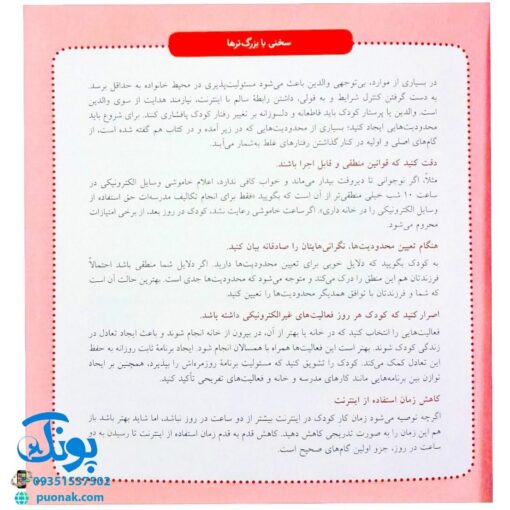 سخنی با بزرگ‌ترها
در بسیاری از موارد، بی‌توجهی والدین باعث می‌شود مسئولیت‌پذیری در محیط خانواده به حداقل برسد.
به دست گرفتن کنترل شرایط و به قولی، داشتن رابطهٔ سالم با اینترنت، نیازمند هدایت از سوی والدین
است. والدین یا پرستار کودک باید قاطعانه و دلسوزانه بر تغییر رفتار کودک پافشاری کنند. برای شروع باید
محدودیت‌هایی ایجاد کنید؛ بسیاری از محدودیت‌هایی که در زیر آمده و در کتاب هم گفته شده است، از
گام‌های اصلی و اولیه در کنار گذاشتن رفتارهای غلط به‌شمار می‌آیند.
دقت کنید که قوانین منطقی و قابل اجرا باشند.
مثلاً، اگر نوجوانی تا دیروقت بیدار می‌ماند و خواب کافی ندارد، اعلام خاموشی وسایل الکترونیکی در
ساعت ۱۰ شب خیلی منطقی‌تر از آن است که بگویید «فقط برای انجام تکالیف مدرسه‌ات حق استفاده از
وسایل الکترونیکی را در خانه داری». اگر ساعت خاموشی رعایت نشد، کودک در روز بعد، از برخی امتیازات
محروم می‌شود.
هنگام تعیین محدودیت‌ها، نگرانی‌هایتان را صادقانه بیان کنید.
به کودک بگویید که دلایل خوبی برای تعیین محدودیت‌ها دارید. اگر دلایل شما منطقی باشد احتمالاً
فرزندتان هم این منطق را درک می‌کند و متوجه می‌شود که محدودیت‌ها جدی است. بهترین حالت آن است
که شما و فرزندتان با توافق همدیگر محدودیت‌ها را تعیین کنید.
اصرار کنید که کودک هر روز فعالیت‌های غیرالکترونیکی داشته باشد.
فعالیت‌هایی را انتخاب کنید که در خانه یا بهتر از آن، در بیرون از خانه انجام شوند و باعث ایجاد تعادل در
زندگی کودک شوند. بهتر است این فعالیت‌ها همراه با همسالان انجام شود. ایجاد برنامهٔ ثابت روزانه به حفظ
این تعادل کمک می‌کند. کودک را تشویق کنید که مسئولیت برنامهٔ روزمره‌اش را بپذیرد، همچنین بر ایجاد
توازن بین برنامه‌هایی مانند کارهای مدرسه و خانه و فعالیت‌های تفریحی تأکید کنید.
کاهش زمان استفاده از اینترنت
اگرچه توصیه می‌شود زمان کار کودک در اینترنت بیشتر از دو ساعت در روز نباشد، اما شاید بهتر باشد باز
هم این زمان را به صورت تدریجی کاهش دهید. کاهش قدم به قدم زمان استفاده از اینترنت تا رسیدن به دو
ساعت در روز، جزو اولین گام‌های صحیح است.
پونک
09351557302
puonak.com